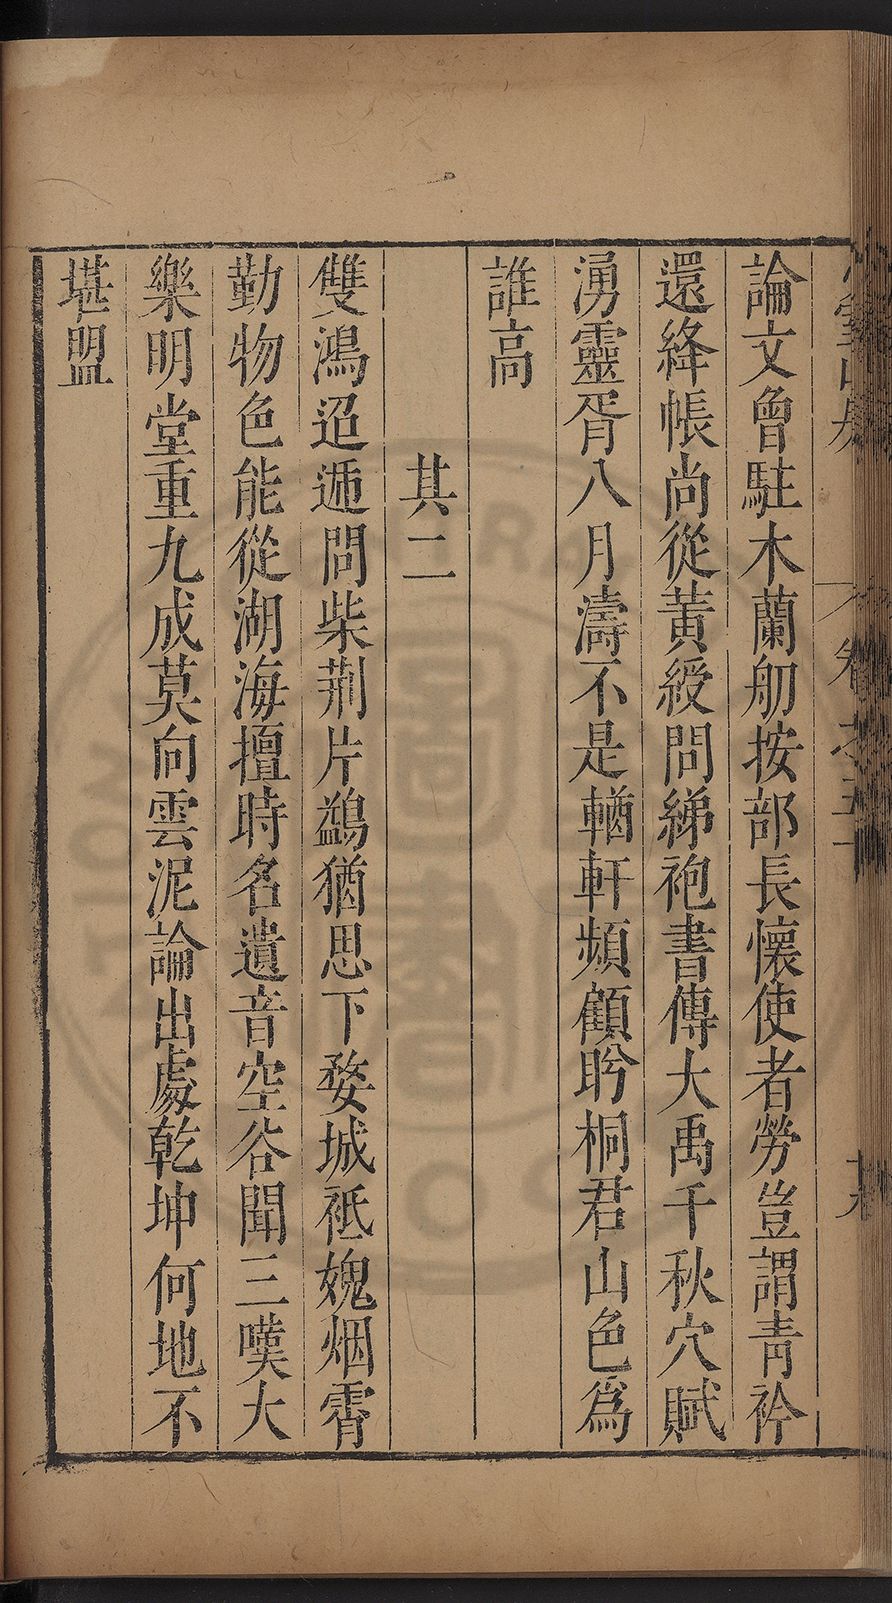 論文曾駐木蘭舠按部長懷使者勞豈謂青衿
還絳帳尚從黃綬問綈袍書傳大禹千秋穴賦
湧靈胥八月濤不是輶軒頻顧盻桐君山色爲
誰高
其二
雙鴻迢遞問柴荆片鷁猶思下婺城祗媿烟霄
勤物色能從湖海擅時名遺音空谷聞三嘆大
樂明堂重九成莫向雲泥論出處乾坤何地不
堪盟